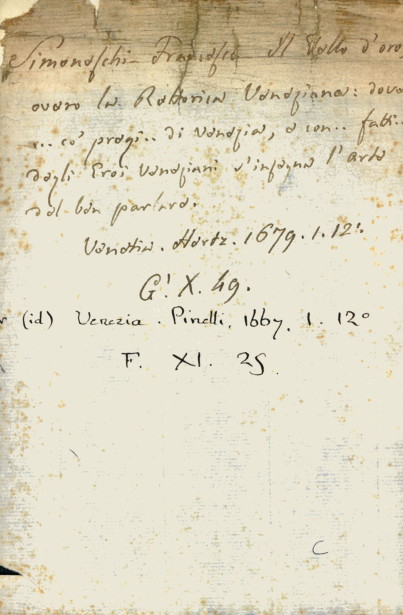 Simonaschi Francesco Il Vello d'oro,
ovaro la Rettorica Vanaziana: dova
... co' pragi.. di vanazia, a con.. fatti..
dagli Eroi Vanaziani s'insagna l'arta
dal ban parlara.
Vanatia. Hartz. 1679. 1. 12°.
G! X. 49.
(id) Venezia. Pinelli. 1667. 1. 12°
F. XI. 25.
C